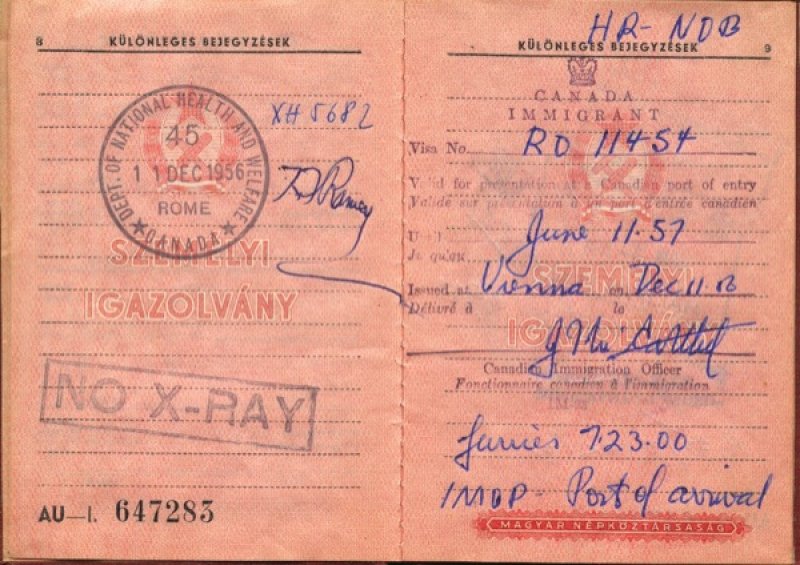 8 KÜLÖNLEGES BEJEGYZÉSEK
DEPT. OF NATIONAL HEALTH AND WELFARE
45
11 DEC 1956
ROME
★ CANADA ★
XH 5682
SZEMÉLYI
IGAZOLVÁNY
NO X-RAY
AU—I. 647283
HR- NDB
KÜLÖNLEGES BEJEGYZÉSEK 9
CANADA
IMMIGRANT
Visa No. RO 11454
Valid for presentation at a Canadian port of entry
Valide sur présentation à un port d'entrée canadien
June 11.57
Jusqu'au
SZEMÉLYI
Issued at Vienna on Dec 11
Délivré à le
IGAZOLVÁNY
Canadian Immigration Officer
Fonctionnaire canadien à l'immigration
723.00
Port of arrival
MAGYAR NÉPKÖZTÁRSASÁG